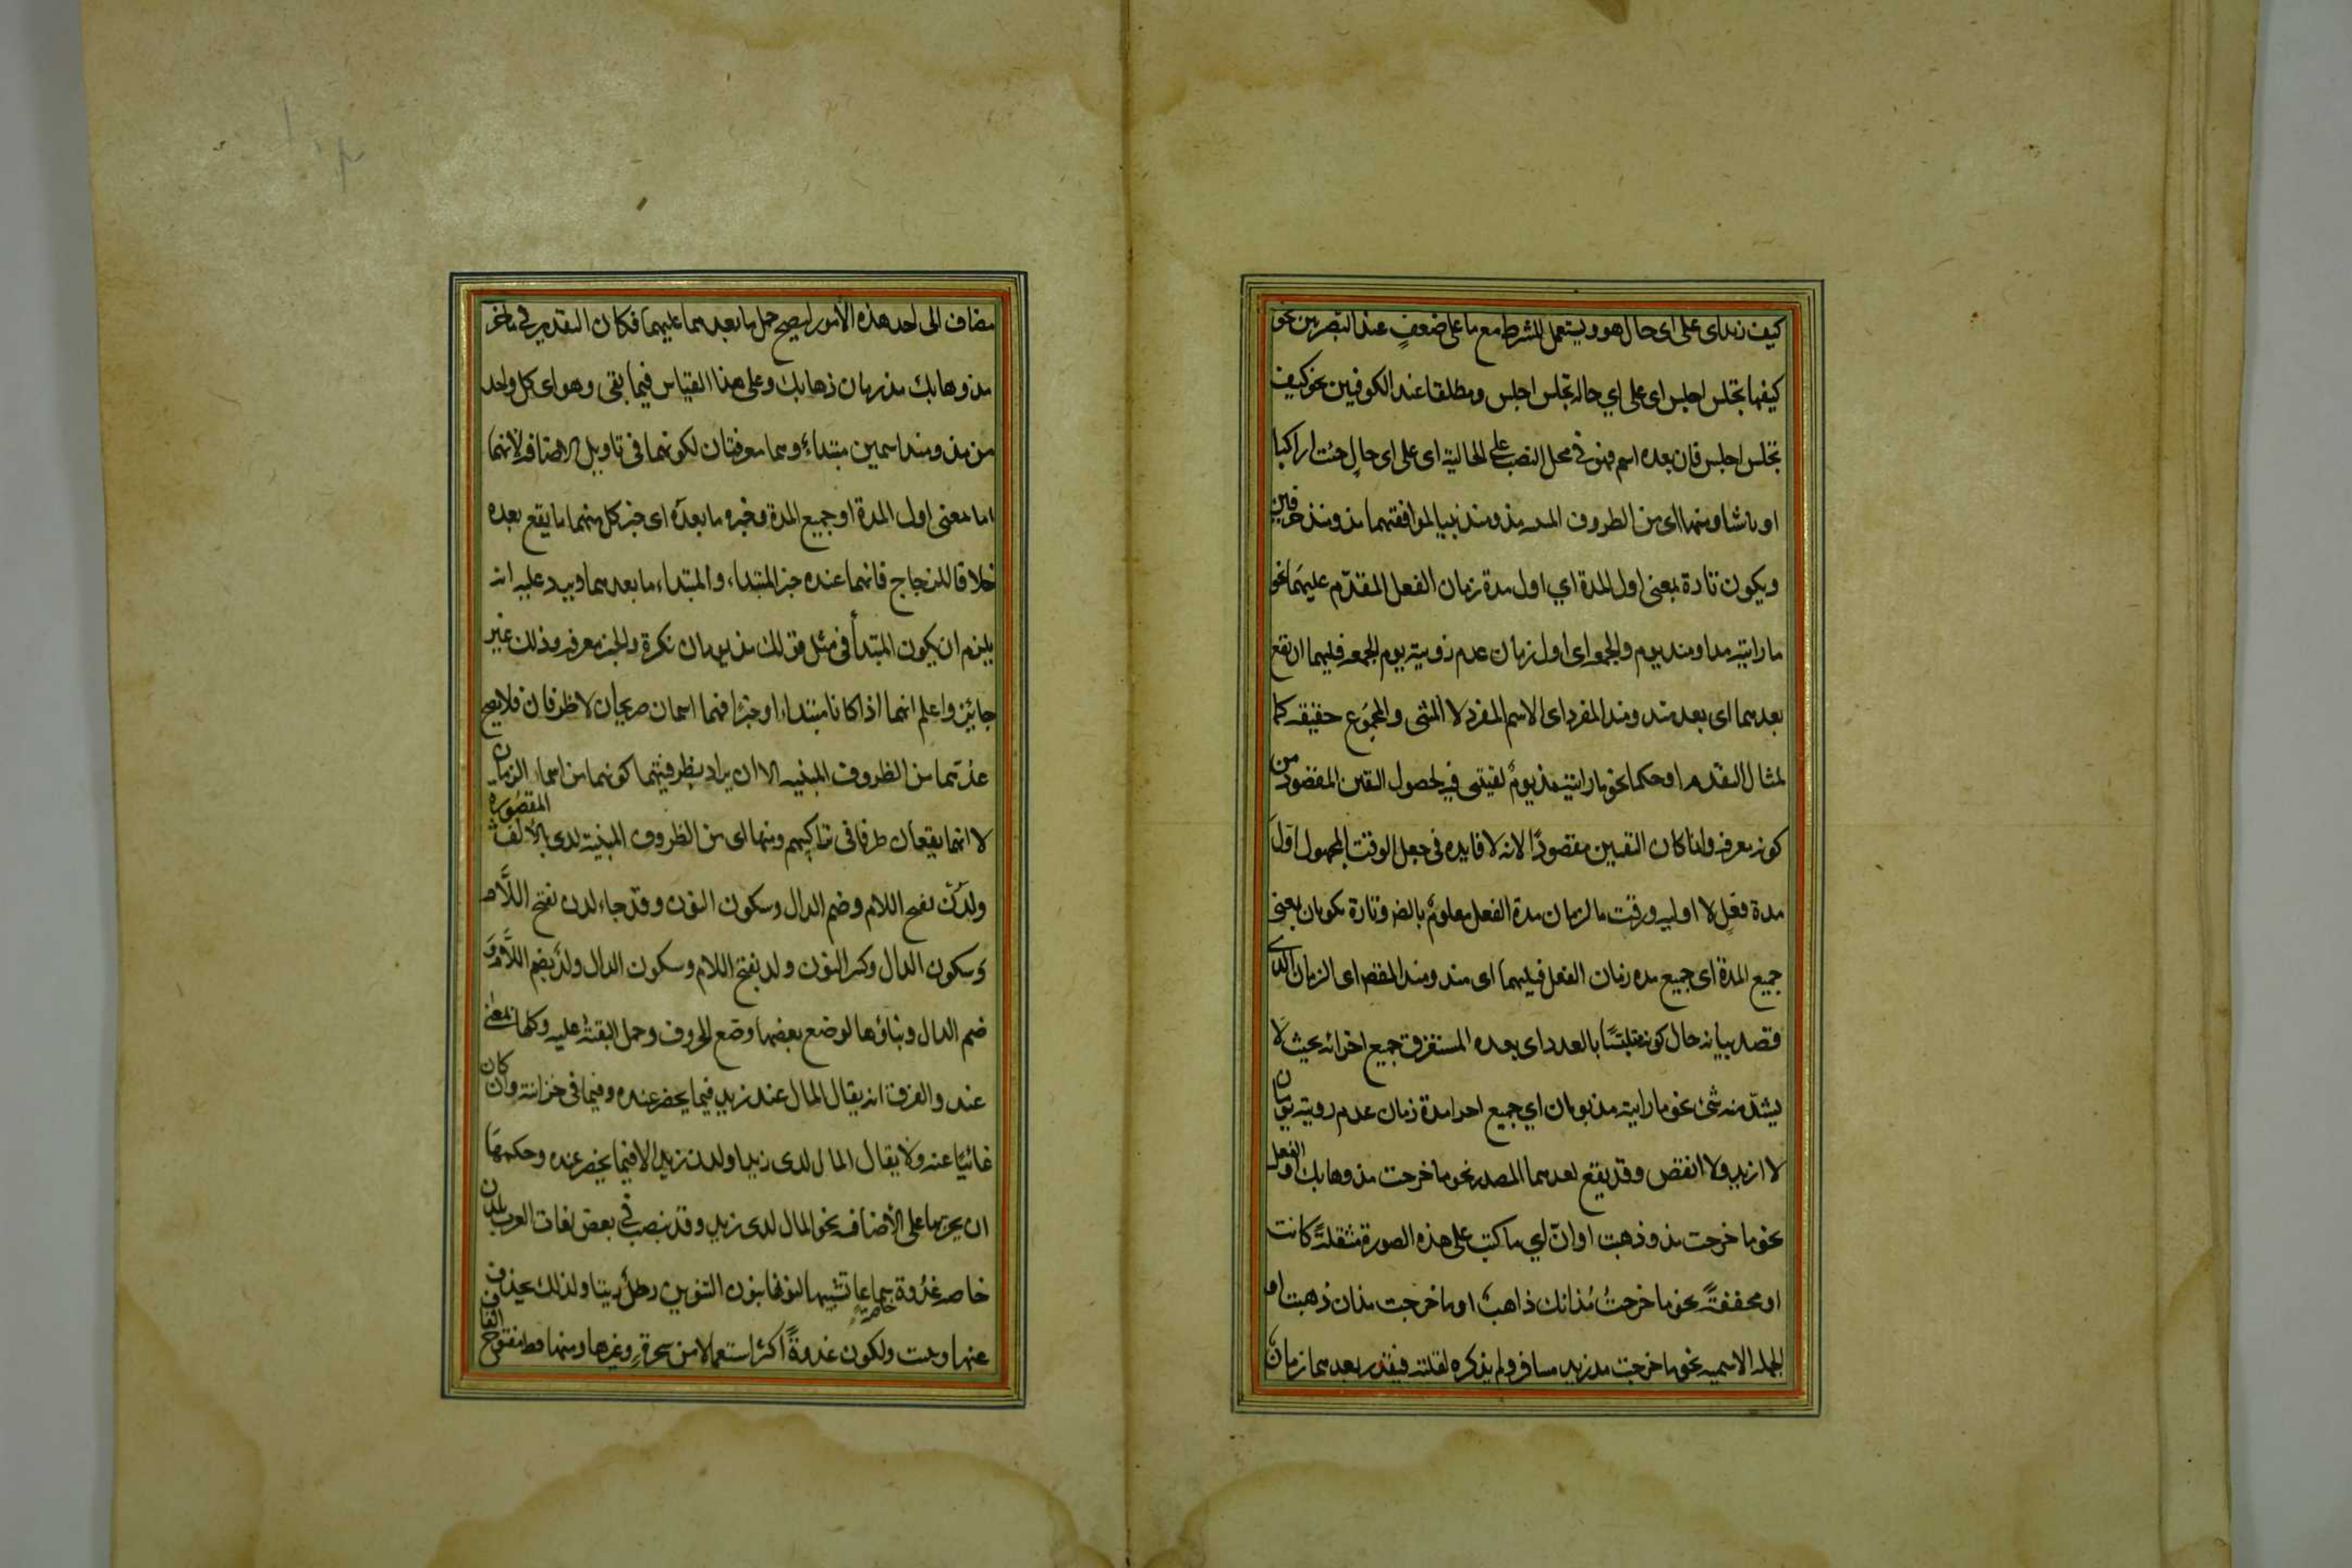 كيف زيداى على اى حال هو ويستعمل للشرط مع ما على ضعفٍ عند البصريين نحو
كيفما تجلس اجلس اى على اي حالة تجلس اجلس ومطلقا عند الكوفيين نحو كيف
تجلس اجلس فان بعده اسم فهو فى محل النصب على الحالية اى على اى حالٍ جئت اراكبا
او ماشيا ومنها اى من الظروف المبنية مذ ومنذ بنيا لموافقتهما مذ ومنذ حرفين
ويكون تارة بمعنى اول المدة اي اول مدة زمان الفعل المقدّم عليهما نحو
ما رايته مذ او منذ يوم والجمعة اى اول زمان عدم رؤيته يوم الجمعة فليهما ان يقع
بعدهما اى بعد مذ ومنذ المفرد اى الاسم المفرد لا المثنى والمجموع حقيقة كما
لمثال المقدم او حكما نحو ما رايته مذ يومٌ لقيتنى فيه لحصول التعين المقصود من
كونه معرفة ولما كان التعيين مقصودًا لانه لا فايده فى جعل الوقت المجهول اوّل
مدة فعلٍ لا اولية وقت ما لزمان مدة الفعل معلوم بالضر وتارة يكونان بمعنى
جميع المدة اى جميع مدة زمان الفعل فيليهما اى مذ ومنذ المقصد اى الزمان الذى
قصد بيانه حال كونه متلبّسًا بالعدد اى بعده المستغرق جميع اجزائه بحيث لا
يشذّ منه شئ نحو ما رايته مذ يومان اي جميع اجزا مدة زمان عدم رويته يومان
لا ازيد ولا انقص وقد يقع بعدهما المصدر نحو ما خرجت مذ وهابك والفعل
نحو ما خرجت مذ وذهبت او انّ اي ما كتب على هذه الصورة مثقلةً كانت
او مخففةً نحو ما خرجتُ مُذ انك ذاهبٌ او ما خرجت مذ ان ذهبت او
الجملة الاسميه نحو ما خرجت مذ زيد مسافر ولم يذكره لقلته فيقدر بعدهما زمان
مضاف الى احد هذه الأمور ليصح حمل ما بعدهما عليهما فكان التقدير فى ما خر
مذ وهابك مذ زمان ذهابك وعلى هذا القياس فيما بقى وهو اى كل واحد
من مذ ومنذ اسمين مبتداء وهما معرفتان لكونهما فى تاويل الاضافة لانهما
اما بمعنى اول المدة او جميع المدة وخبره ما بعده اى خبر كل منهما ما يقع بعده
خلافا للزجاج فانهما عنده خبر المبتداء والمبتداء ما بعدهما ويرد عليه انه
يلزم ان يكون المبتدأ فى مثل قولك مذ يومان نكرة والخبر معرفه وذلك غير
جايئز واعلم انهما اذا كانا مبتداء او خبرًا فهما اسمان صريحان لا ظرفان فلا يصح
عدّهما من الظروف المبنيه الا ان يراد بظرفيتهما كونهما من اسماء الزمان
لا انهما يقعان ظرفا فى تراكيبهم ومنها اى من الظروف المبنية لدى بالالف المقصوره
ولدُن بفتح اللام وضم الدال وسكون النون وقد جاء لدن بفتح اللّام
وسكون الدال وكسر النون ولد بفتح اللام وسكون الدال ولدُ بضم اللّام و
ضم الدال وبناؤها لوضع بعضها وضع الحروف وحمل البقيّة عليه وكلها بمعنى
عند والفرق انه يقال المال عند زيد فيما يحضر عنده وفيما فى خزانته وان كان
غائبًا عنه ولا يقال المال لدى زيد او لدن زيد الا فيما يحضر عنده وحكمها
ان يجر بها على الأضافه نحو المال لدى زيد وقد ينصب فى بعض لغات العرب بلدن
خاصه غدوة سماعا تشبيها لنونها بنون التنوين رطلٌ زيتا ولذلك يحذف
عنها وثبت ولكون غدوةً اكثر استعمالا من سحرةٍ وغيرها ومنها قط مفتوح القاف